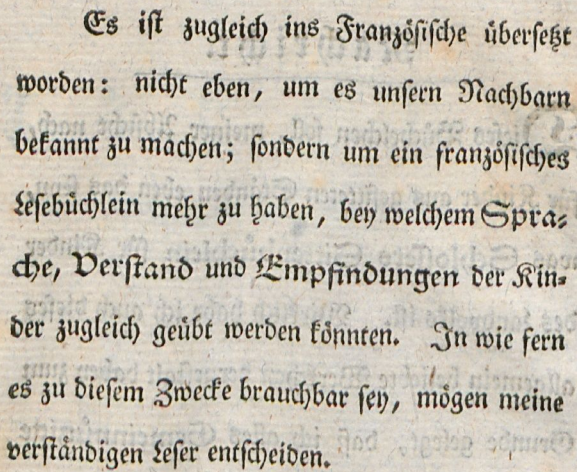 Es ist zugleich ins Französische übersetzt
worden: nicht eben, um es unsern Nachbarn
bekannt zu machen; sondern um ein französisches
Lesebüchlein mehr zu haben, bey welchem Spra⸗
che, Verstand und Empfindungen der Kin⸗
der zugleich geübt werden könnten. In wie fern
es zu diesem Zwecke brauchbar sey, mögen meine
verständigen Leser entscheiden.